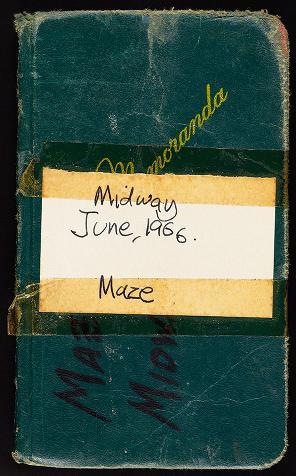 Memoranda
Midway
June, 1966.
Maze
MAZ
MIDW